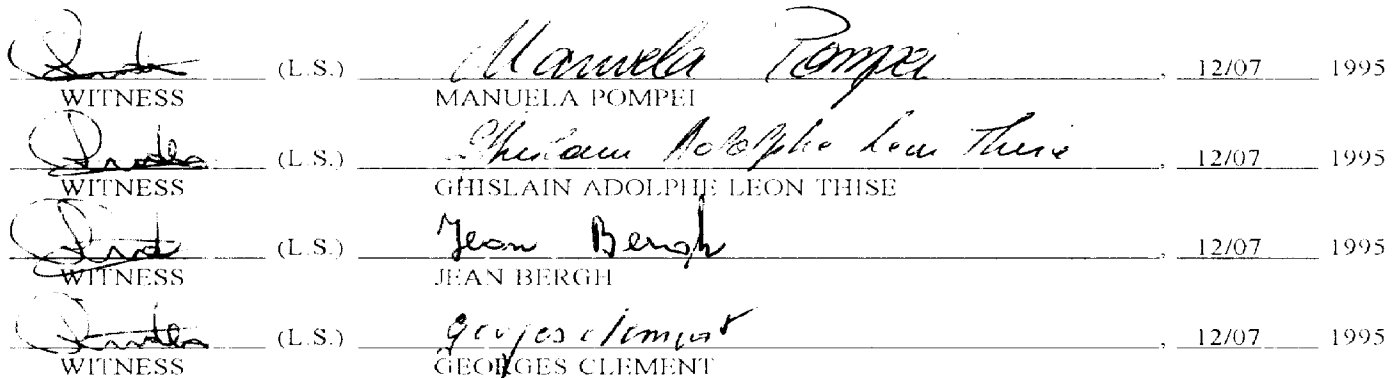 (L.S.) Manuela Pompei, 12/07 1995
WITNESS MANUELA POMPEI
(L.S.) Ghislain Adolphe Leon Thise, 12/07 1995
WITNESS GHISLAIN ADOLPHE LEON THISE
(L.S.) Jean Bergh, 12/07 1995
WITNESS JEAN BERGH
(L.S.) georges clement, 12/07 1995
WITNESS GEORGES CLEMENT